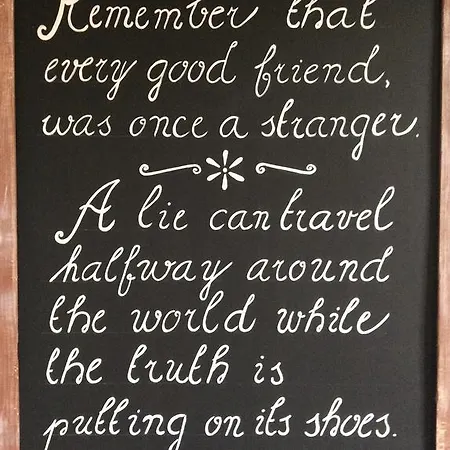 Remember that
every good friend,
was once a stranger.
A lie can travel
halfway around
the world while
the truth is
putting on its shoes.